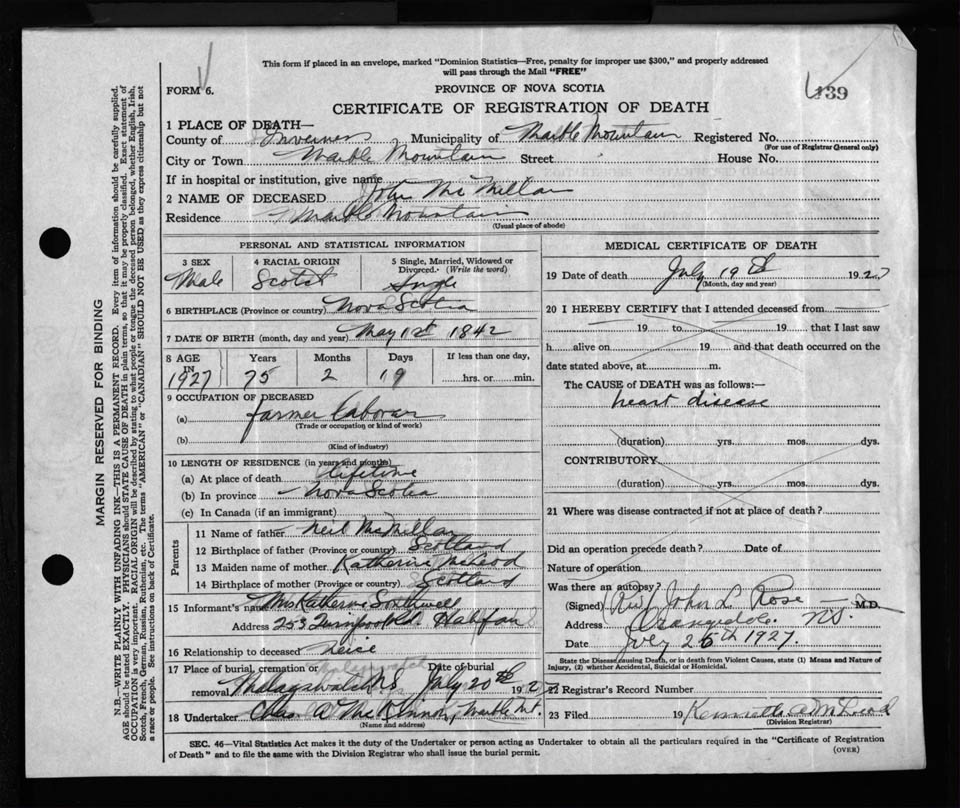 This form if placed in an envelope, marked "Dominion Statistics—Free, penalty for improper use $300," and properly addressed
will pass through the Mail "FREE"
FORM 6.
PROVINCE OF NOVA SCOTIA
139
CERTIFICATE OF REGISTRATION OF DEATH
1 PLACE OF DEATH—
County of Inverness Municipality of Marble Mountain Registered No.
(For use of Registrar General only)
City or Town Marble Mountain Street House No.
If in hospital or institution, give name
2 NAME OF DECEASED John McMillan
Residence Marble Mountain
(Usual place of abode)
PERSONAL AND STATISTICAL INFORMATION
3 SEX 4 RACIAL ORIGIN 5 Single, Married, Widowed or
Divorced. (Write the word)
Male Scotch Single
6 BIRTHPLACE (Province or country) Nova Scotia
7 DATE OF BIRTH (month, day and year) May 1st 1842
8 AGE Years Months Days If less than one day,
IN
1927 75 2 19 hrs. or min.
9 OCCUPATION OF DECEASED
(a) farmer laborer
(Trade or occupation or kind of work)
(b)
(Kind of industry)
10 LENGTH OF RESIDENCE (in years and months)
(a) At place of death lifetime
(b) In province Nova Scotia
(c) In Canada (if an immigrant)
Parents
11 Name of father Neil McMillan
12 Birthplace of father (Province or country) Scotland
13 Maiden name of mother Katherine McLeod
14 Birthplace of mother (Province or country) Scotland
15 Informant's name Mrs Katherine Southwell
Address 253 Halifax
16 Relationship to deceased neice
17 Place of burial, cremation or Date of burial
removal Malagawatch NS July 20th 1927
18 Undertaker Chas A McKinnon, Marble Mt.
(Name and address)
MEDICAL CERTIFICATE OF DEATH
19 Date of death July 19th 1927
(Month, day and year)
20 I HEREBY CERTIFY that I attended deceased from
19 to 19 that I last saw
h alive on 19 and that death occurred on the
date stated above, at m.
The CAUSE of DEATH was as follows:—
heart disease
(duration) yrs. mos. dys.
CONTRIBUTORY
(duration) yrs. mos. dys.
21 Where was disease contracted if not at place of death?
Did an operation precede death? Date of
Nature of operation
Was there an autopsy?
(Signed) Rev John L Rose M.D.
Address Orangedale NS.
Date July 26th 1927.
State the Disease causing Death, or in death from Violent Causes, state (1) Means and Nature of
Injury, (2) whether Accidental, Suicidal or Homicidal.
22 Registrar's Record Number
23 Filed 19 Kenneth A McLeod
(Division Registrar)
SEC. 46—Vital Statistics Act makes it the duty of the Undertaker or person acting as Undertaker to obtain all the particulars required in the "Certificate of Registration
of Death" and to file the same with the Division Registrar who shall issue the burial permit.
(OVER)
MARGIN RESERVED FOR BINDING
N.B.—WRITE PLAINLY WITH UNFADING INK—THIS IS A PERMANENT RECORD. Every item of information should be carefully supplied.
AGE should be stated EXACTLY. PHYSICIANS should STATE CAUSE OF DEATH in plain terms, so that it may be properly classified. Exact statement of
OCCUPATION is very important. RACIAL ORIGIN will be described by stating to what people or tongue the deceased person belonged, whether English, Irish,
Scotch, French, German, Russian, Ruthenian, etc. The terms "AMERICAN" or "CANADIAN" SHOULD NOT BE USED as they express citizenship but not
a race or people. See instructions on back of Certificate.